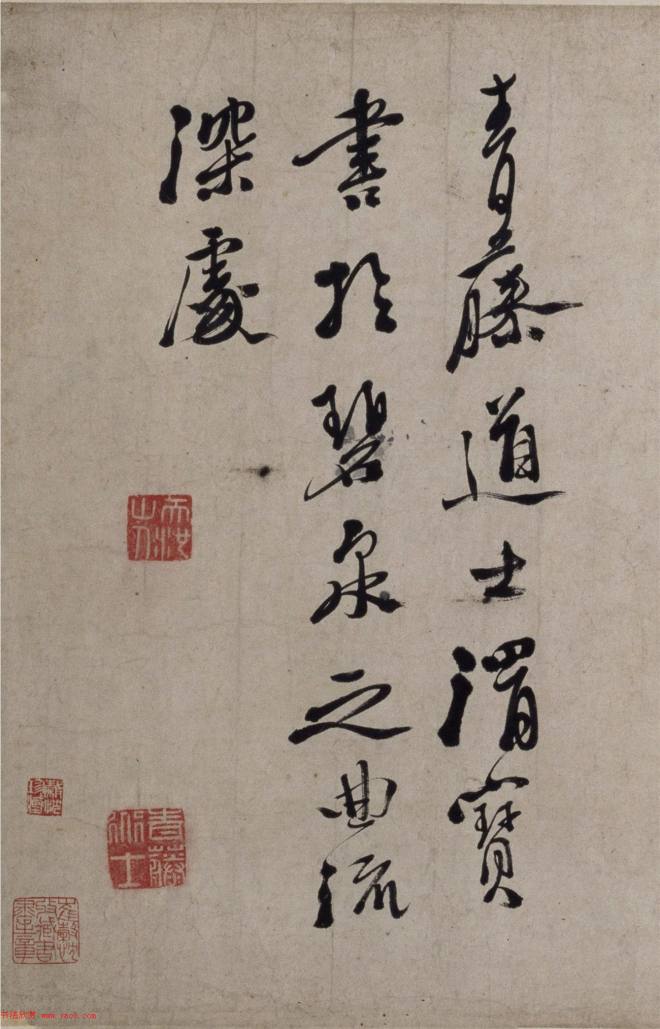 青藤道士渭寶
書於碧泉之曲流
深處
青藤道士
书法欣赏 www.yac8.com